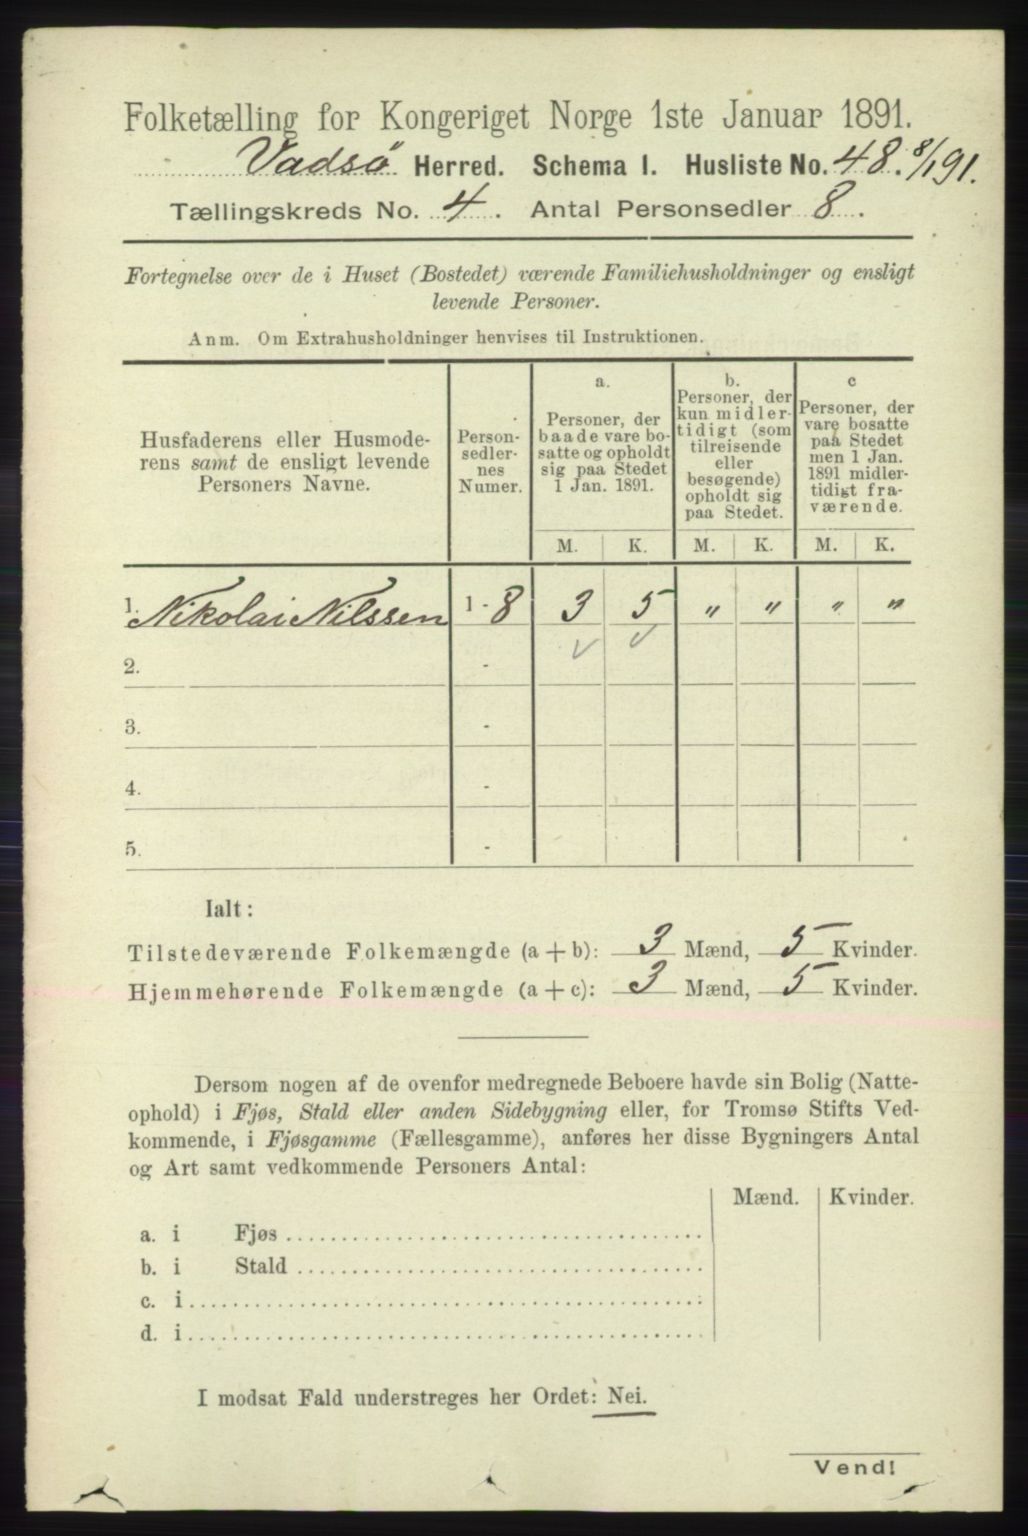 Folketælling for Kongeriget Norge 1ste Januar 1891.
Vadsø Herred. Schema I. Husliste No. 48. 8/1 91.
Tællingskreds No. 4. Antal Personsedler 8.
Fortegnelse over de i Huset (Bostedet) værende Familiehusholdninger og ensligt
levende Personer.
Anm. Om Extrahusholdninger henvises til Instruktionen.
Husfaderens eller Husmode-
rens samt de ensligt levende
Personers Navne.
Person-
sedler-
nes
Numer.
a.
Personer, der
baade vare bo-
satte og opholdt
sig paa Stedet
1 Jan. 1891.
b.
Personer, der
kun midler-
tidigt (som
tilreisende
eller
besøgende)
opholdt sig
paa Stedet.
c
Personer, der
vare bosatte
paa Stedet
men 1 Jan.
1891 midler-
tidigt fra-
værende.
M. K. M. K. M. K.
1. Nikolai Nilssen 1 - 8 3 5 " " " "
2. -
3. -
4. -
5. -
Ialt:
Tilstedeværende Folkemængde (a + b): 3 Mænd, 5 Kvinder.
Hjemmehørende Folkemængde (a + c): 3 Mænd, 5 Kvinder.
Dersom nogen af de ovenfor medregnede Beboere havde sin Bolig (Natte-
ophold) i Fjøs, Stald eller anden Sidebygning eller, for Tromsø Stifts Ved-
kommende, i Fjøsgamme (Fællesgamme), anføres her disse Bygningers Antal
og Art samt vedkommende Personers Antal:
Mænd. Kvinder.
a. i Fjøs
b. i Stald
c. i
d. i
I modsat Fald understreges her Ordet: Nei.
Vend!